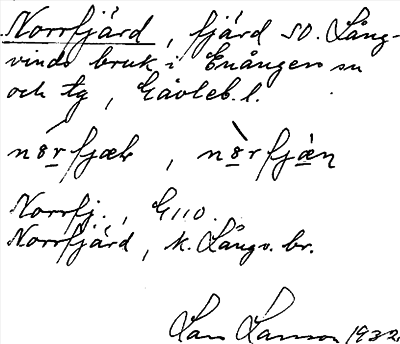 Norrfjärd, fjärd SO. Lång-
vinds bruk i Enångers sn
och tg, Gävleb. l.
Norrfj., G110.
Norrfjärd, k. Långv. br.
Lars Larsson 1932